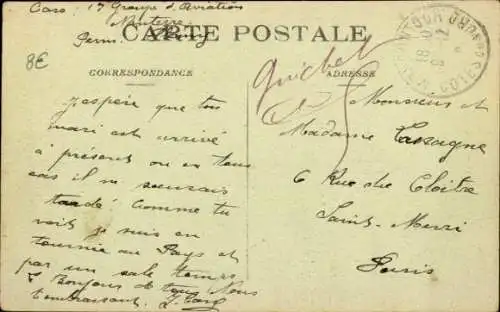 Caro: 17 Groupe d'Aviation
Nanterre
Perm.
CARTE POSTALE
8€
CORRESPONDANCE
ADRESSE
Guichet
5
J'espère que ton
mari est arrivé
à présent ou en tous
cas il ne saurait
tardé comme tu
vois je suis en
tournée au Pays et
par un sale temps
Bonjour de tous Nous
t'embrassant. J. Caro
Monsieur et
Madame Cassagne
6 Rue du Cloître
Saint-Merri
Paris